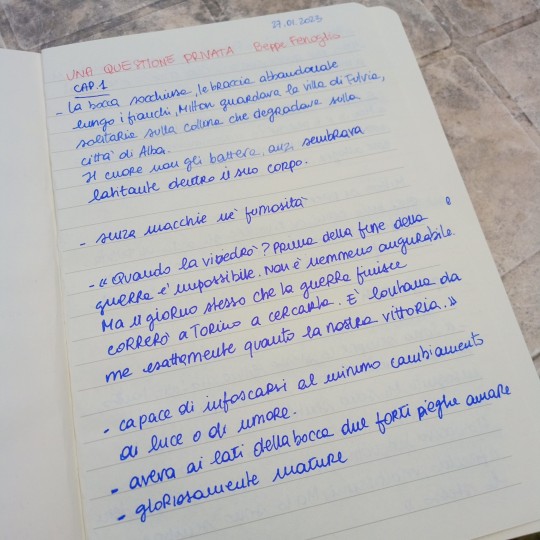 27.01.2023
UNA QUESTIONE PRIVATA Beppe Fenoglio
CAP.1
- La bocca socchiusa, le braccia abbandonate
lungo i fianchi, Milton guardava la villa di Fulvia,
solitaria sulla collina che degradava sulla
città di Alba.
Il cuore non gli batteva, anzi sembrava
latitante dentro il suo corpo.
- senza macchie né fumosità
- «Quando la vedrò? Prima della fine della
guerra è impossibile. Non è nemmeno augurabile.
Ma il giorno stesso che la guerra finisce
correrò a Torino a cercarla. È lontana da
me esattamente quanto la nostra vittoria.»
- capace di infoscarsi al minimo cambiamento
di luce o di umore.
- aveva ai lati della bocca due forti pieghe amare
- gloriosamente mature